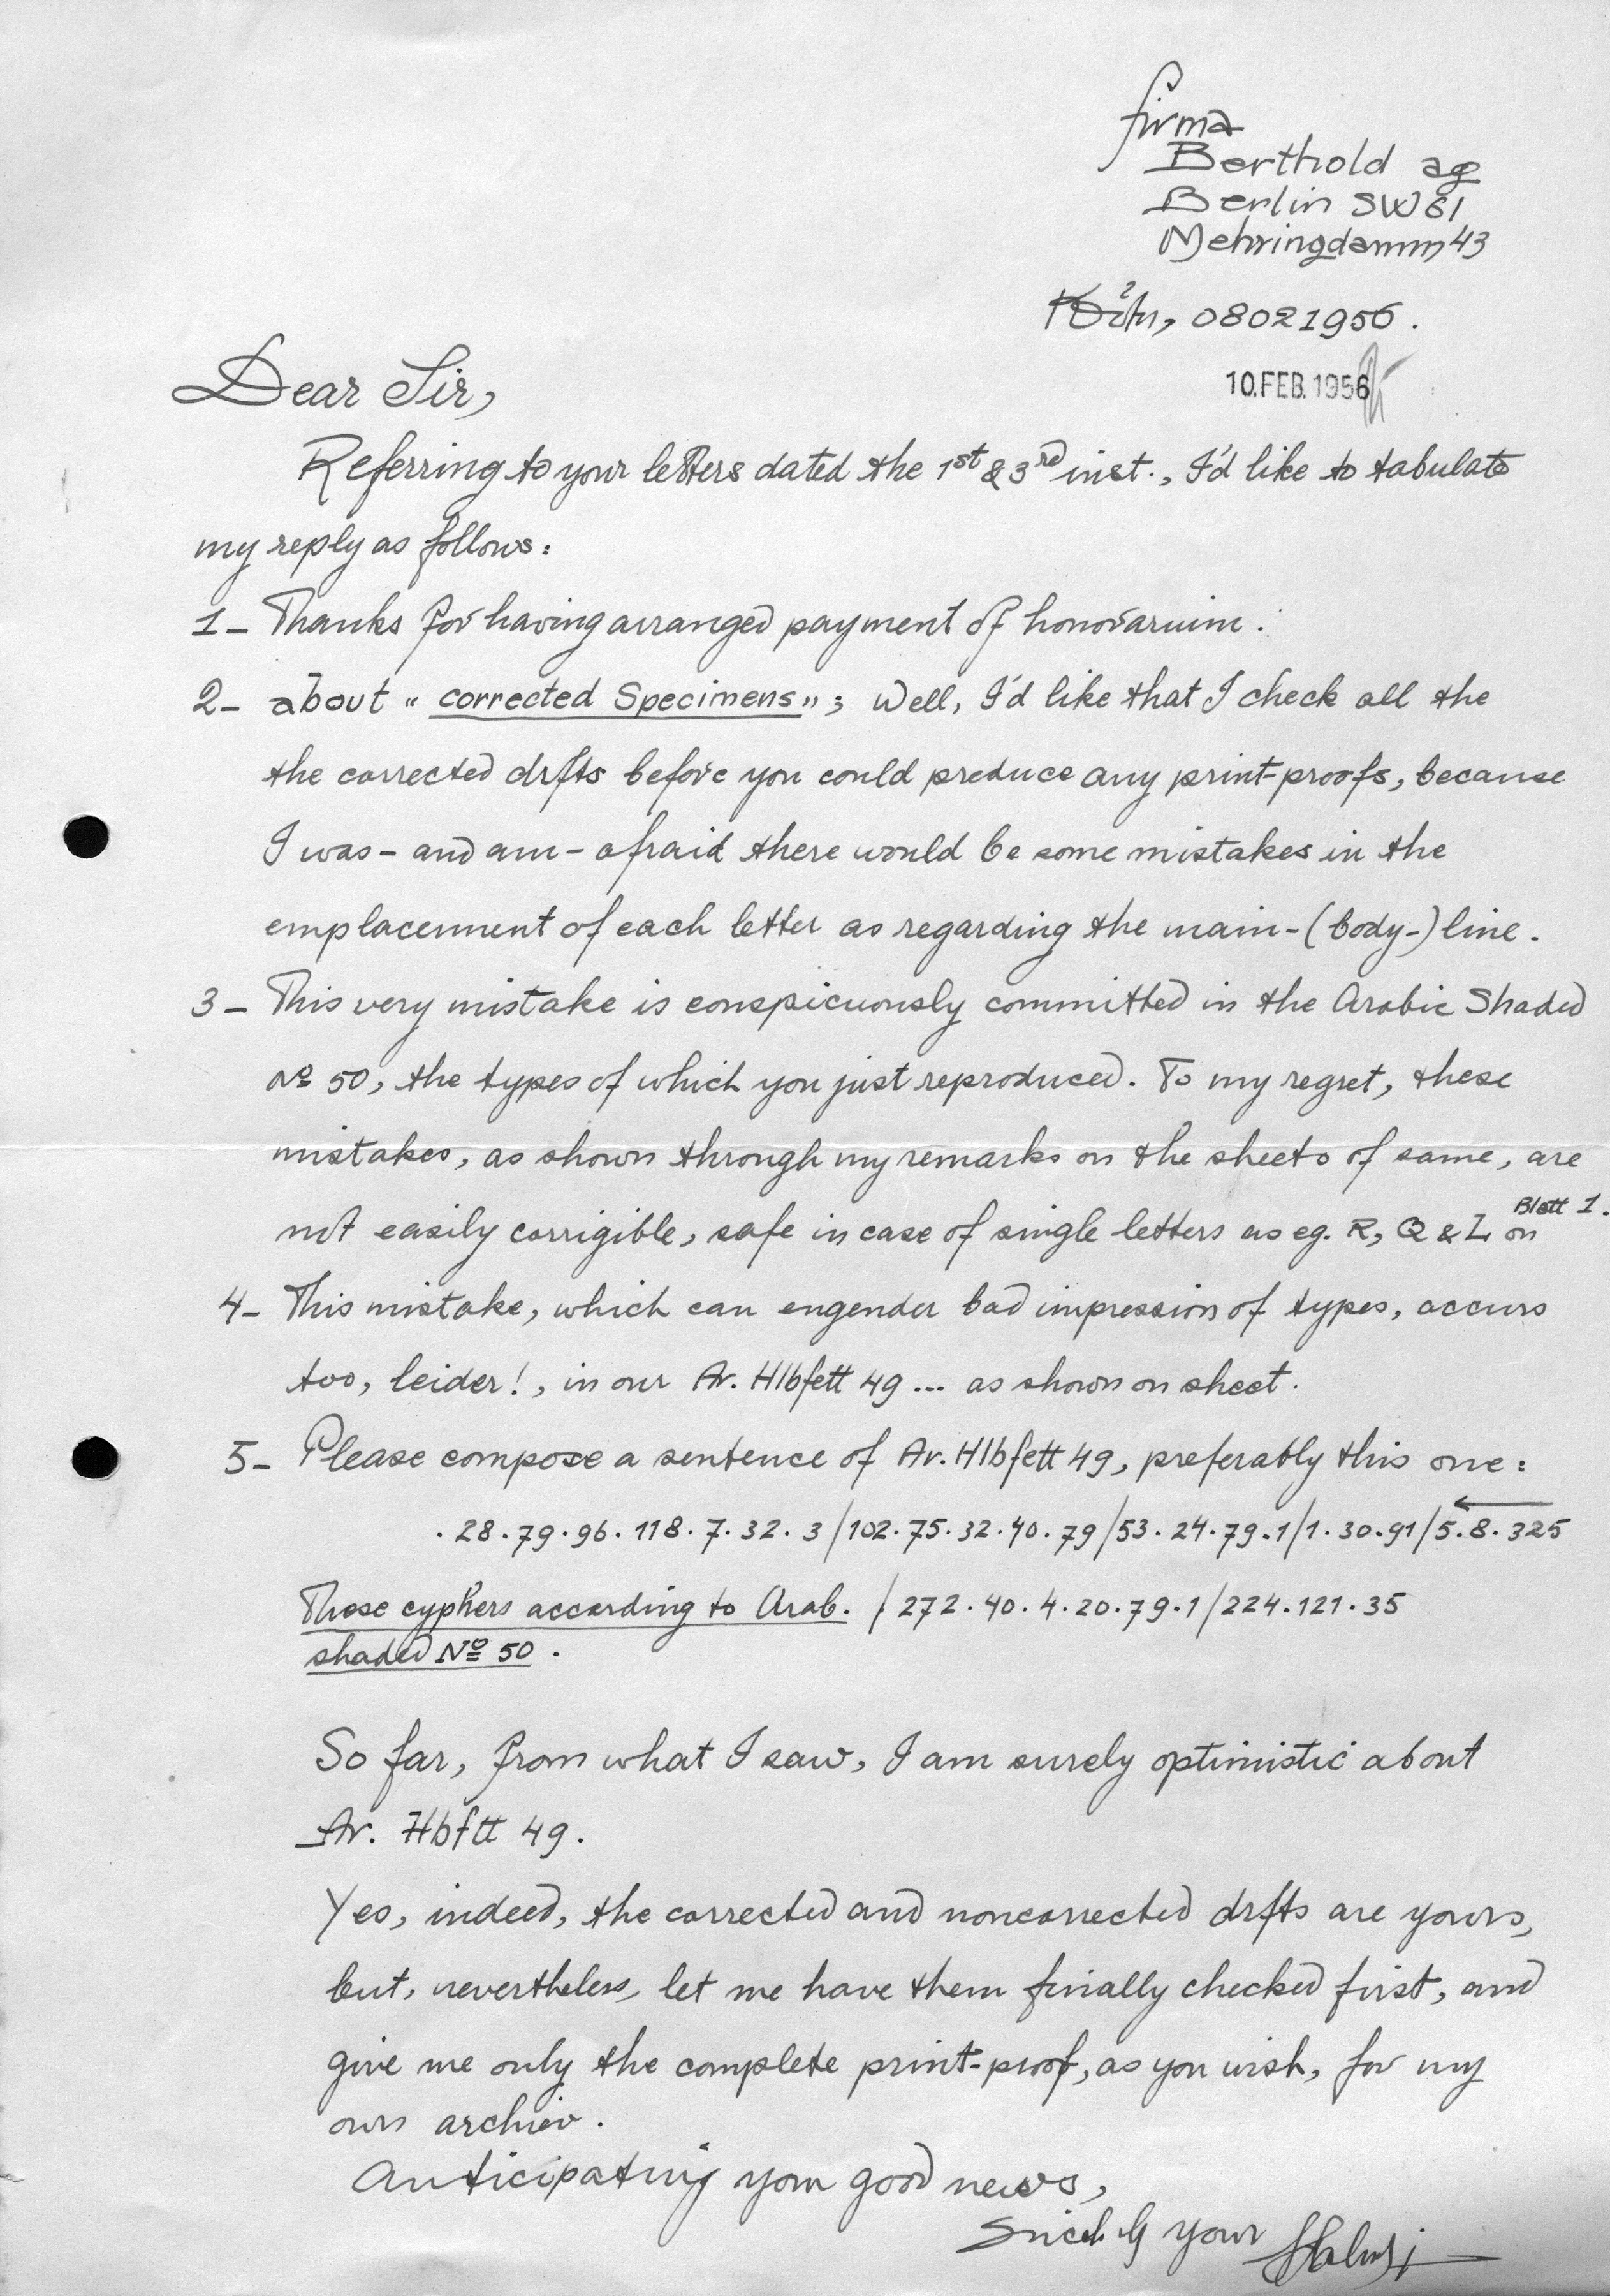 firma
Berthold ag
Berlin SW 61
Mehringdamm 43
Köln, 08021956.
10.FEB.1956
Dear Sir,
Referring to your letters dated the 1st & 3rd inst., I'd like to tabulate
my reply as follows:
1- Thanks for having arranged payment of honorarium.
2- about « corrected Specimens » ; Well, I'd like that I check all the
the corrected drfts before you could produce any print-proofs, because
I was - and am - afraid there would be some mistakes in the
emplacement of each letter as regarding the main-(body-) line.
3- This very mistake is conspicuously committed in the Arabic Shaded
Nº 50, the types of which you just reproduced. To my regret, these
mistakes, as shown through my remarks on the sheets of same, are
not easily corrigible, safe in case of single letters as eg. R, Q & L on Blatt 1.
4- This mistake, which can engender bad impression of types, occurs
too, leider!, in our Ar. Hlbfett 49 ... as shown on sheet.
5- Please compose a sentence of Ar. Hlbfett 49, preferably this one:
. 28 . 79 . 96 . 118 . 7 . 32 . 3 / 102 . 75 . 32 . 40 . 79 / 53 . 24 . 79 . 1 / 1 . 30 . 91 / 5 . 8 . 325
Those cyphers according to Arab. / 272 . 40 . 4 . 20 . 79 . 1 / 224 . 121 . 35
shaded Nº 50 .
So far, from what I saw, I am surely optimistic about
Ar. Hbftt 49.
Yes, indeed, the corrected and noncorrected drfts are yours,
but, nevertheless, let me have them finally checked first, and
give me only the complete print-proof, as you wish, for my
own archiv.
Anticipating your good news,
your